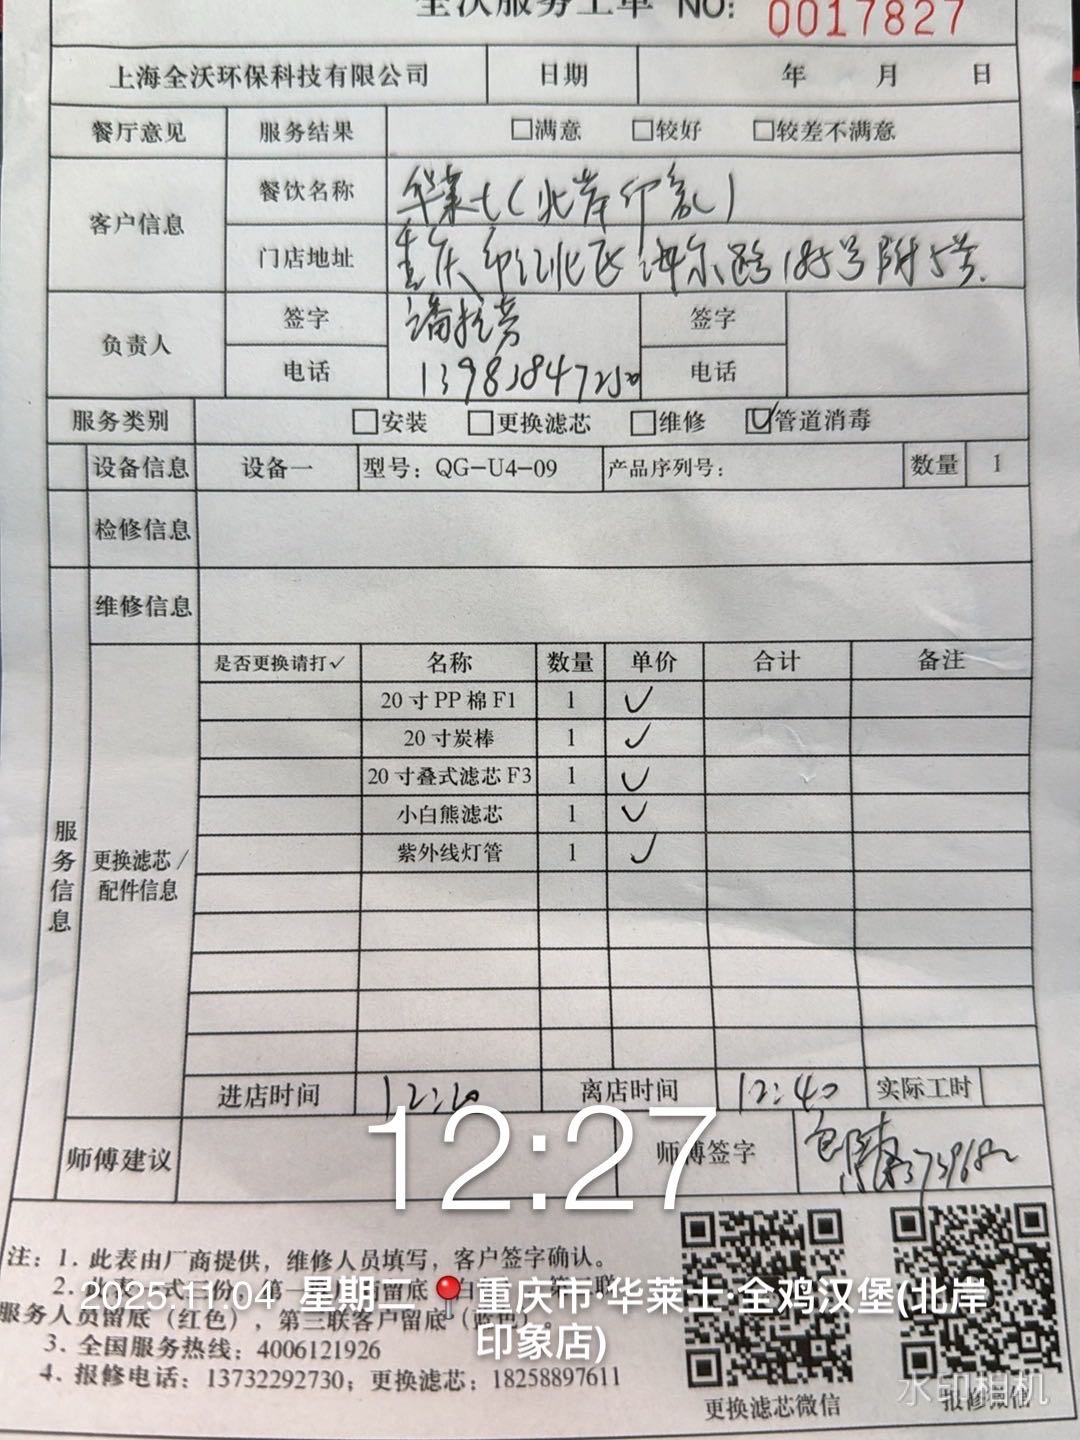 全沃服务工单 NO: 0017827
上海全沃环保科技有限公司 日期 年 月 日
餐厅意见 服务结果 □满意 □较好 □较差不满意
客户信息 餐饮名称 华莱士(北岸印象)
门店地址 重庆市江北区海尔路185号附5号
负责人 签字 签字
电话 电话
服务类别 □安装 □更换滤芯 □维修 ☑管道消毒
设备信息 设备一 型号: QG-U4-09 产品序列号: 数量 1
检修信息
维修信息
是否更换请打✓ 名称 数量 单价 合计 备注
20寸PP棉F1 1 ✓
20寸炭棒 1 ✓
20寸叠式滤芯F3 1 ✓
小白熊滤芯 1 ✓
紫外线灯管 1 ✓
服务信息
更换滤芯/
配件信息
进店时间 离店时间 12:40 实际工时
12:27
师傅建议 师傅签字
注: 1. 此表由厂商提供, 维修人员填写, 客户签字确认。
2025.11.04 星期二 重庆市·华莱士·全鸡汉堡(北岸
印象店)
服务人员留底(红色), 第三联客户留底(蓝色)。
3. 全国服务热线: 4006121926
4. 报修电话: 13732292730; 更换滤芯: 18258897611
更换滤芯微信 报修微信
水印相机